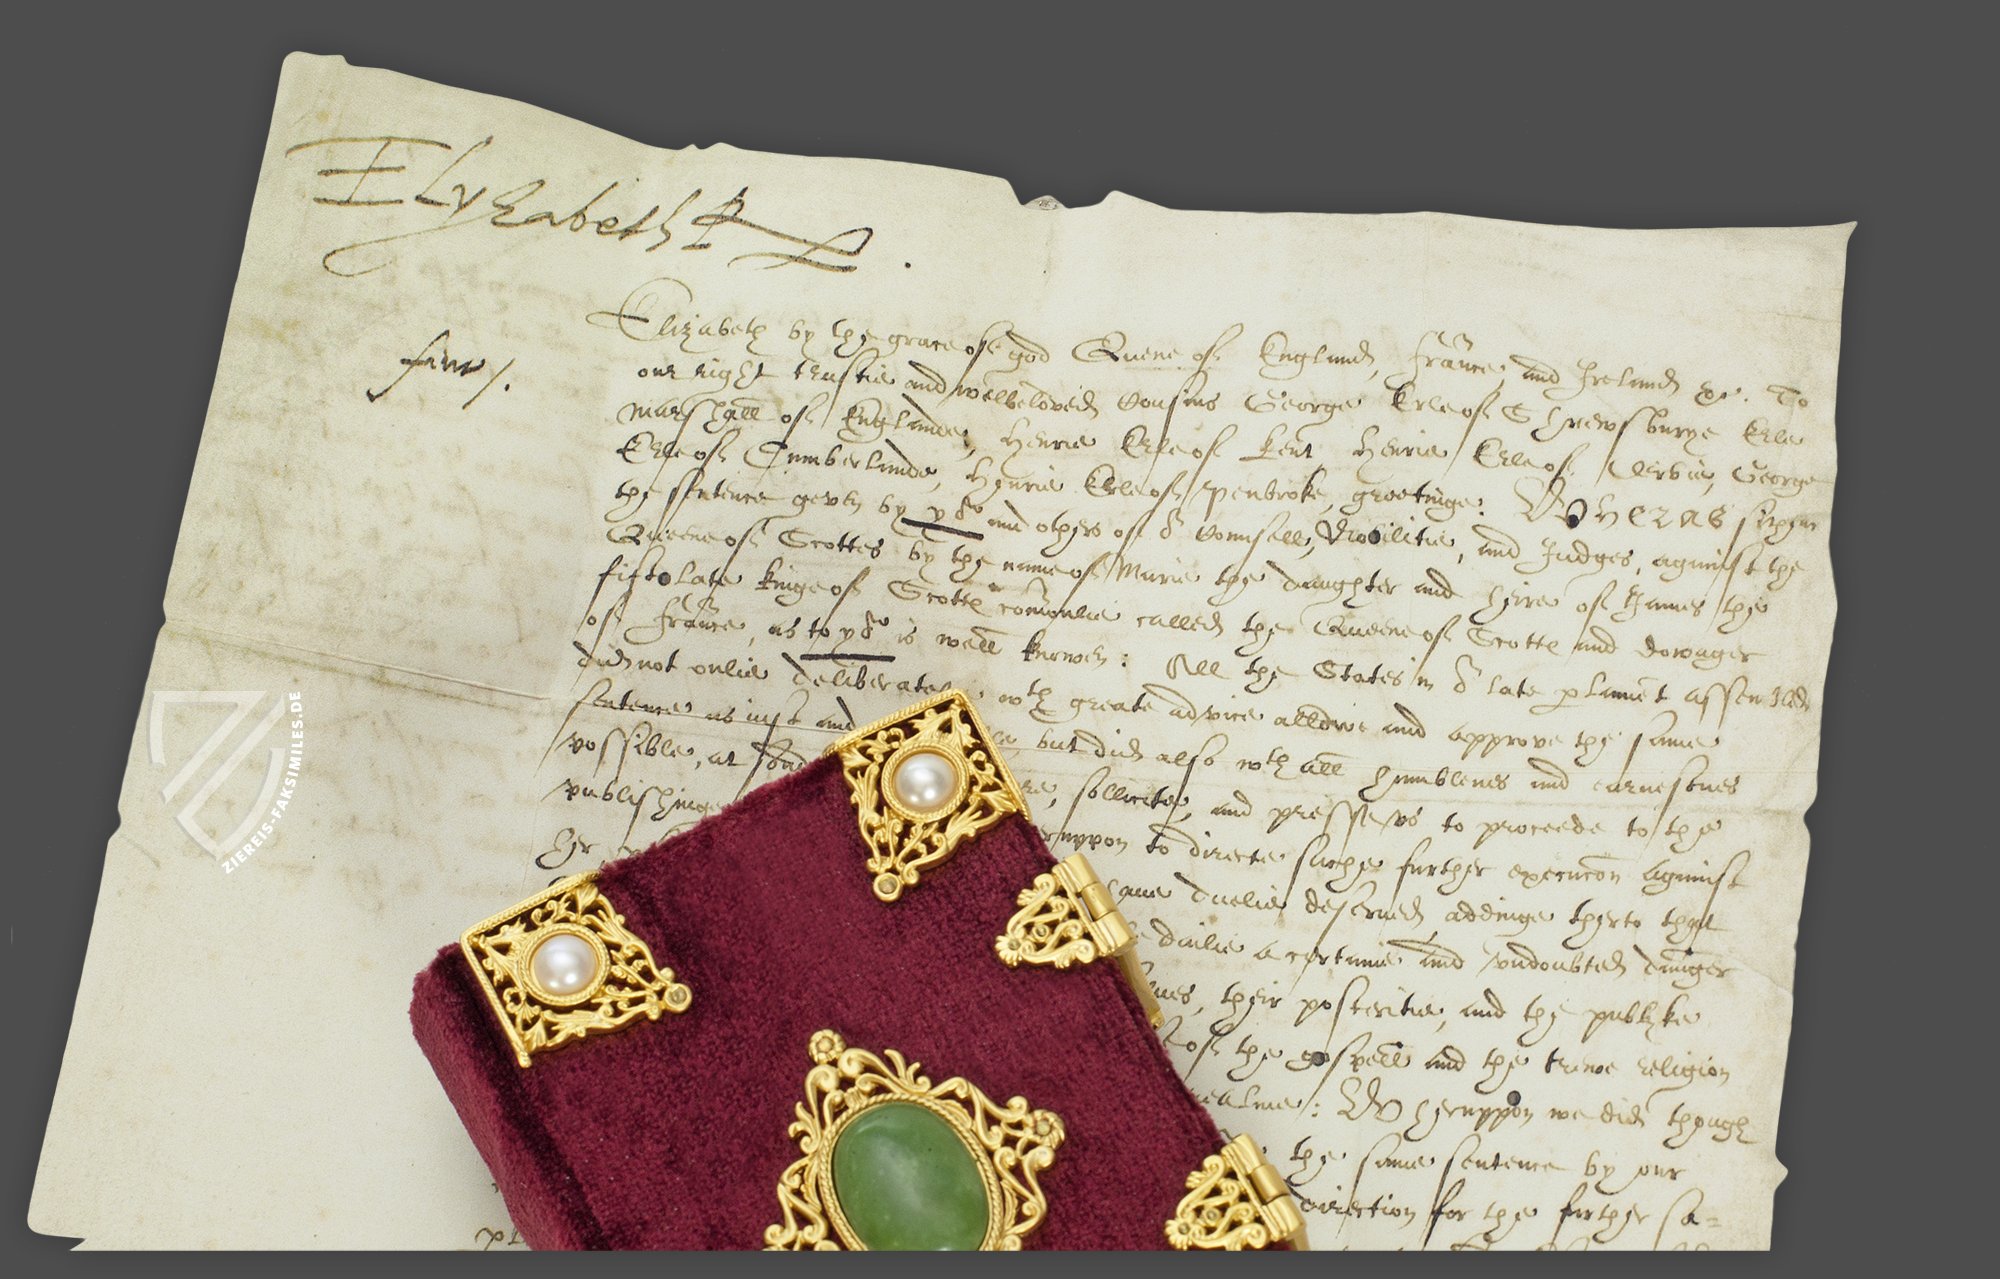 Elyzabeth R
Elizabeth by the grace of god Quene of England, Fraunce, and Ireland &c. To
our right trustie and welbeloved Cousins George Erle of Shrewsburye Erle
marshall of Englande, Henrie Erle of Kent Henrie Erle of Derbie, George
Erle of Cumberlande, Henrie Erle of Penbroke, greetinge: Wheras sithen
the sentence geven by yo^u and others of o^r Counsell, Nobilitie, and Judges, against the
Queene of Scottes by the name of Marie the daughter and heire of James the
fift late kinge of Scotte com̄onlie called the Queene of Scotte and dowager
of Fraūce, as to yo^u is well knowen: All the States in o^r late plament assembled
did not onlie deliberate w^th greate advice allowe and approve the same
sentence as iust and but did also w^th all humblenes and earnestnes
possible, at sollicite, and presse us to proceede to the
publishinge to directe suche further execucōn against
her have duelie deserved addinge therto that
dailie a certaine and undoubted daunger
their posteritie, and the publyke
of the gospell and the trewe religion
realme: Wheruppon we did though
the same sentence by our
direction for the further sa=
ZIEREIS-FAKSIMILES.DE